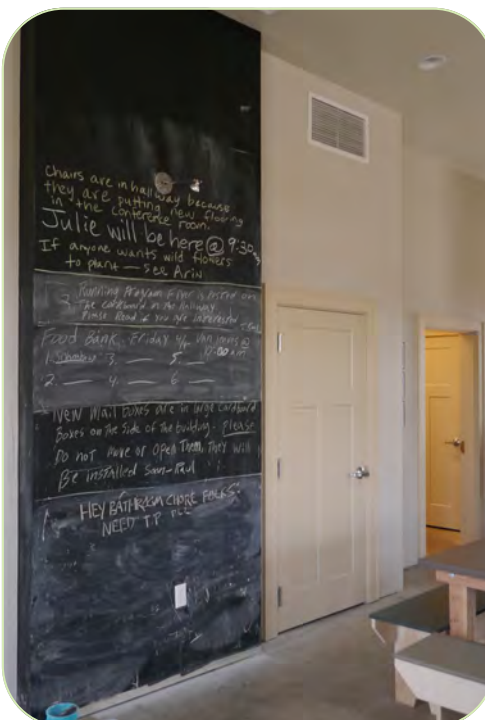 Chairs are in hallway because
they are putting new flooring
in the conference room.
Julie will be here @ 9:30
If anyone wants wild flowers
to plant — see Arin
Running Program Flyer is Posted on
the in the Hallway
Please Read if you are interested
Food Bank Friday Van leaves @
1. 3. 5.
2. 4. 6.
New Mail Boxes are in large Cardboard
Boxes on the side of the building. Please
Do not move or open Them, They will
Be installed Soon - Paul
HEY BATHROOM CHORE FOLKS:
NEED T.P.